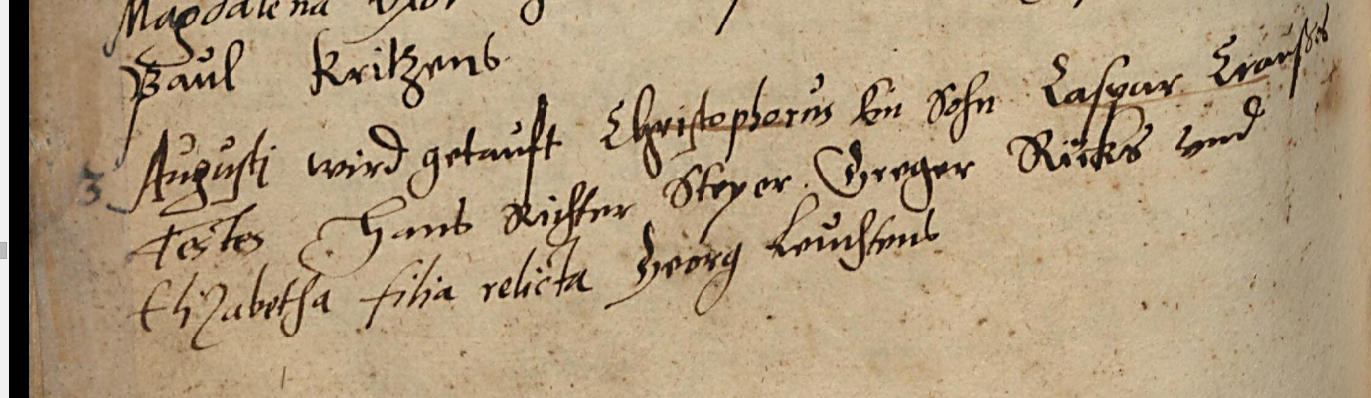 Magdalena Uxor
Paul Kritzens
3 Augusti wird getauft Christophorus Ein Sohn Caspar Craußes
Testes Hans Richter Steyer. Greger Ricks und
Elizabetha filia relicta Georg Leuchtens